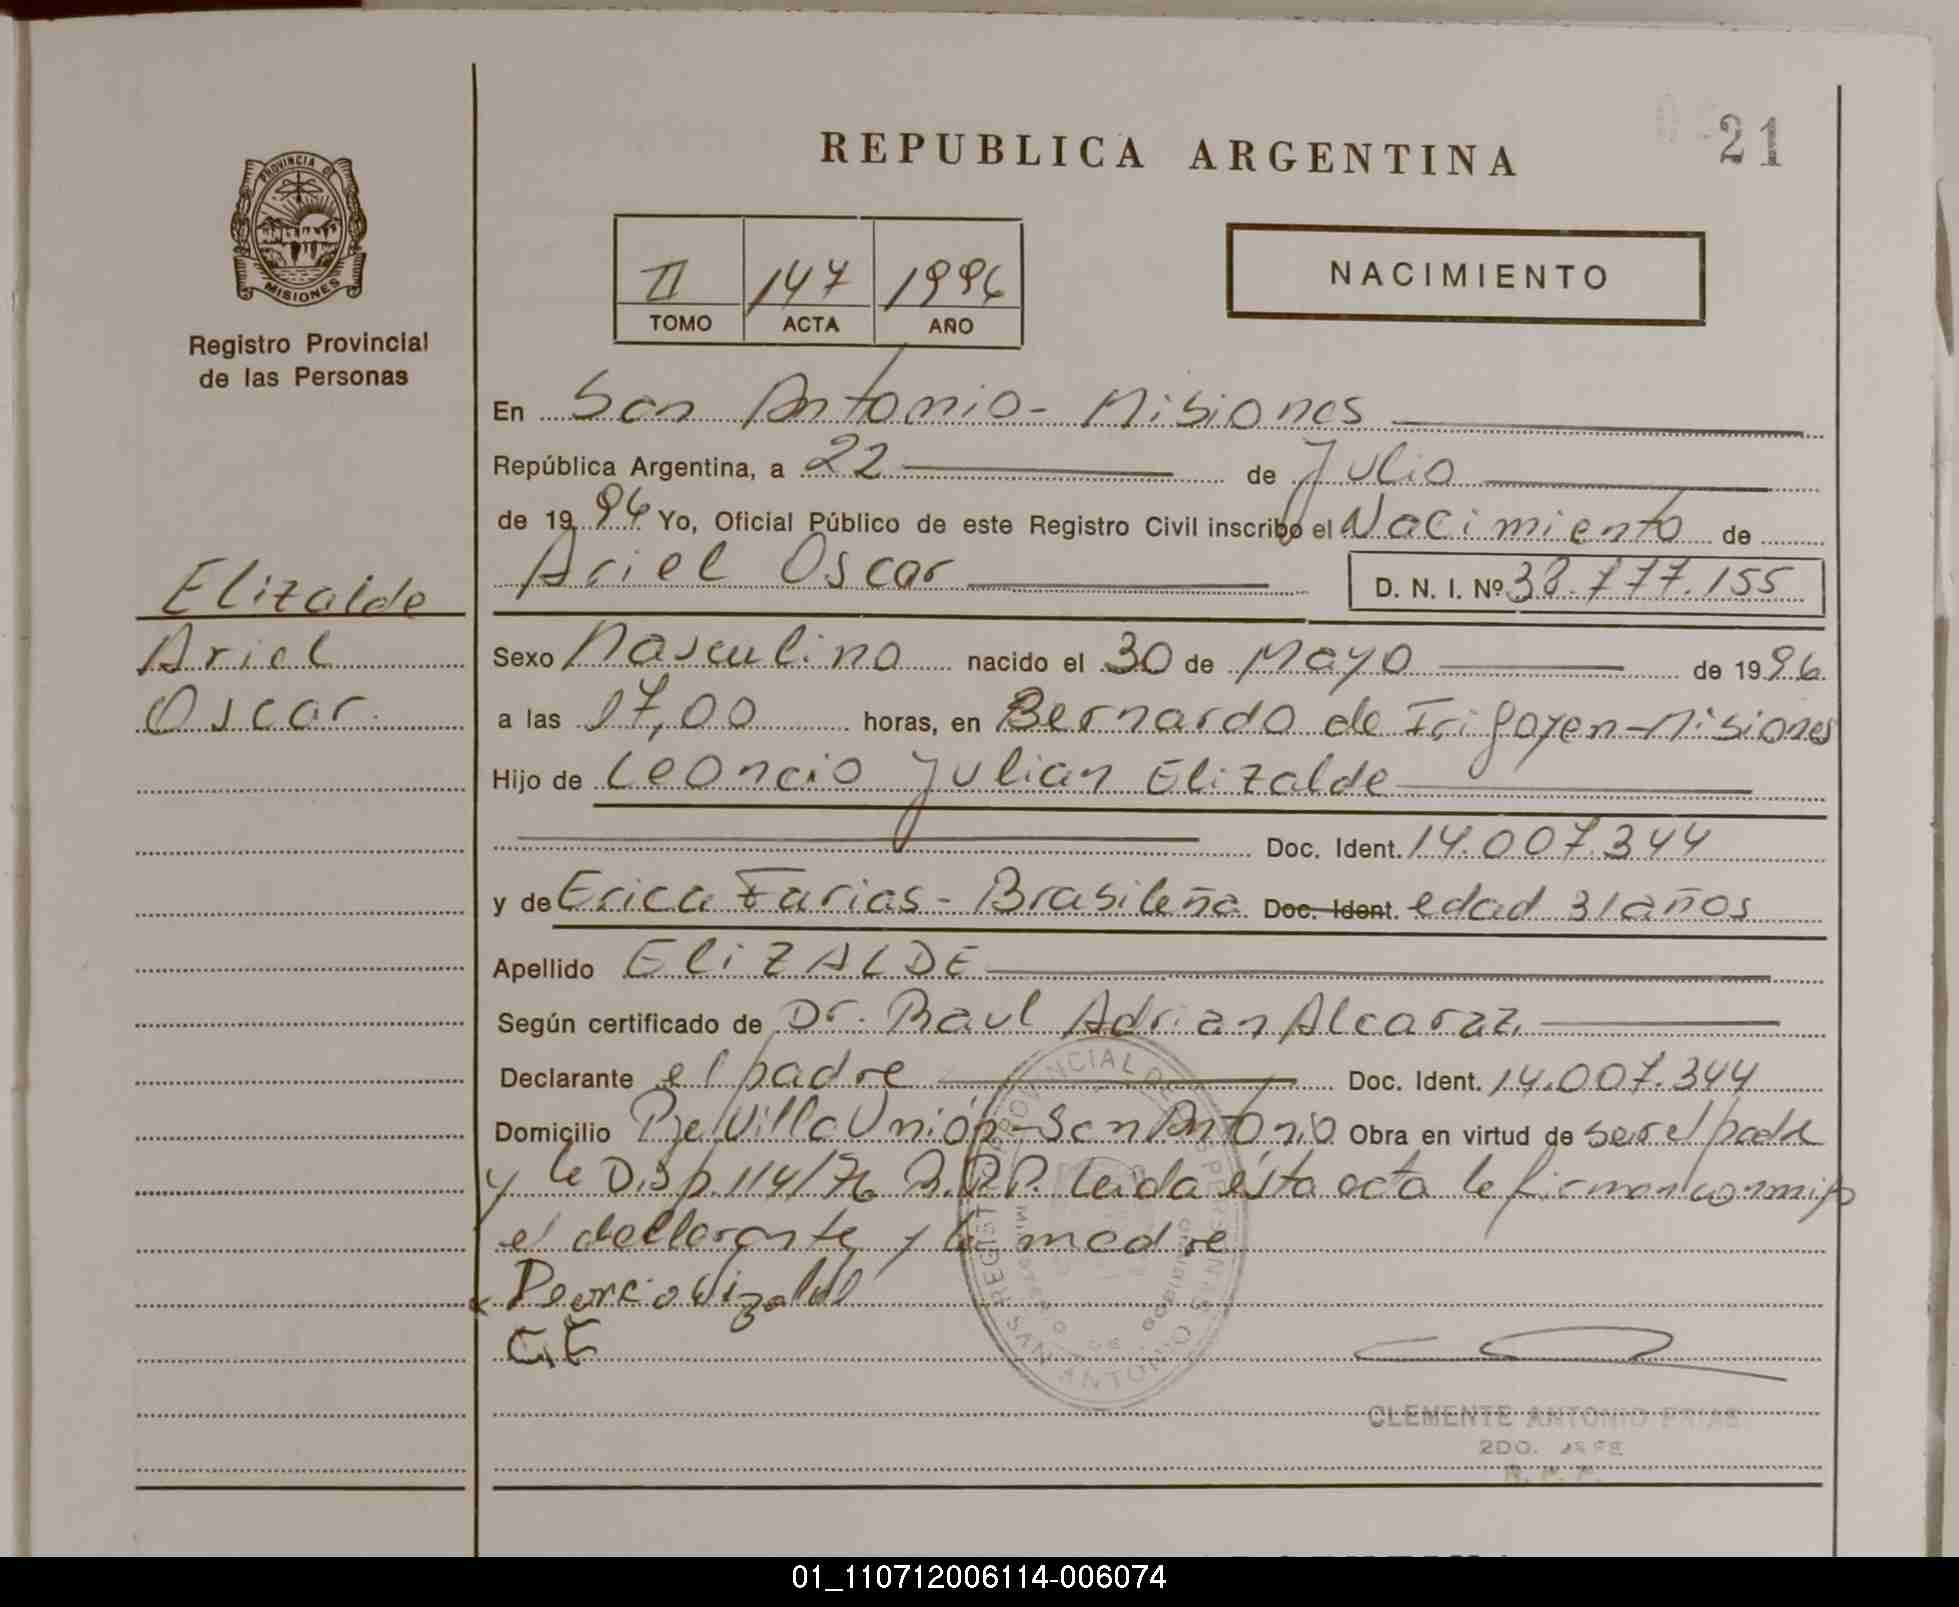 REPUBLICA ARGENTINA
21
PROVINCIA DE
MISIONES
Registro Provincial
de las Personas
II 147 1996
TOMO ACTA AÑO
NACIMIENTO
En San Antonio - Misiones
República Argentina, a 22 de Julio
de 1996 Yo, Oficial Público de este Registro Civil inscribo el Nacimiento de
Ariel Oscar D. N. I. Nº 38.777.155
Elizalde
Ariel
Oscar
Sexo Masculino nacido el 30 de Mayo de 1996
a las 17,00 horas, en Bernardo de Irigoyen - Misiones
Hijo de Leoncio Julian Elizalde
Doc. Ident. 14.007.344
y de Erica Farias - Brasileña Doc. Ident. edad 31 años
Apellido ELIZALDE
Según certificado de Dr. Raul Adrian Alcaraz
Declarante el padre Doc. Ident. 14.007.344
Domicilio Pje Villa Unión - San Antonio Obra en virtud de ser el padre
y la Disp. 114/76 R.P.P. Leida ésta acta la firman conmigo
el declarante y la madre
REGISTRO PROVINCIAL DE LAS PERSONAS
SAN ANTONIO
CLEMENTE ANTONIO FRIAS
2DO. JEFE
R. P. P.
01_110712006114-006074